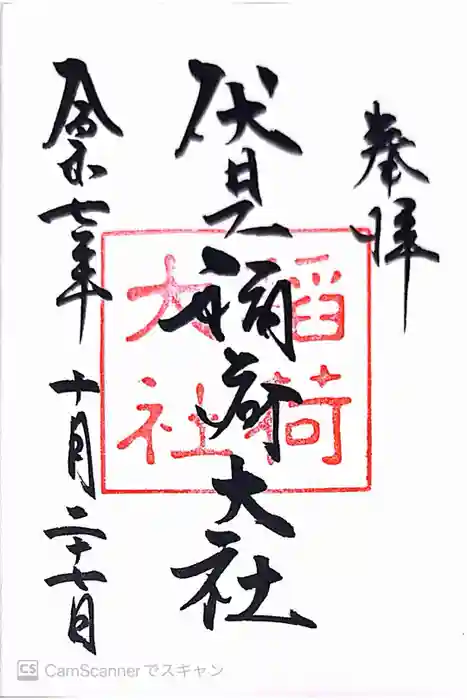 奉拝
伏見稲荷大社
稲荷
大社
令和七年十月二十七日
CS CamScannerでスキャン